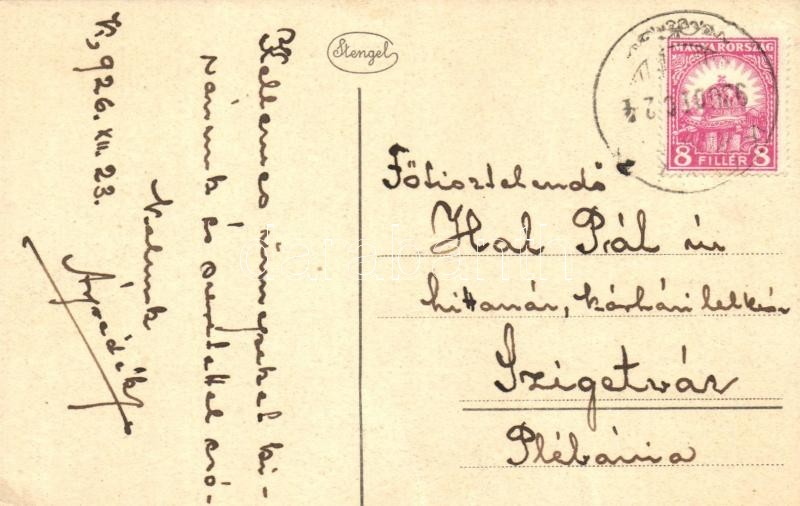 Stengel
MAGYARORSZÁG
8 FILLÉR 8
Kellemes ünnepeket kí-
vánunk és szeretettel csó-
kolunk
Árpádék
V., 926. XII. 23.
Főtisztelendő
Hal Pál úr
hittanár, kórházi lelkész
Szigetvár
Plébánia